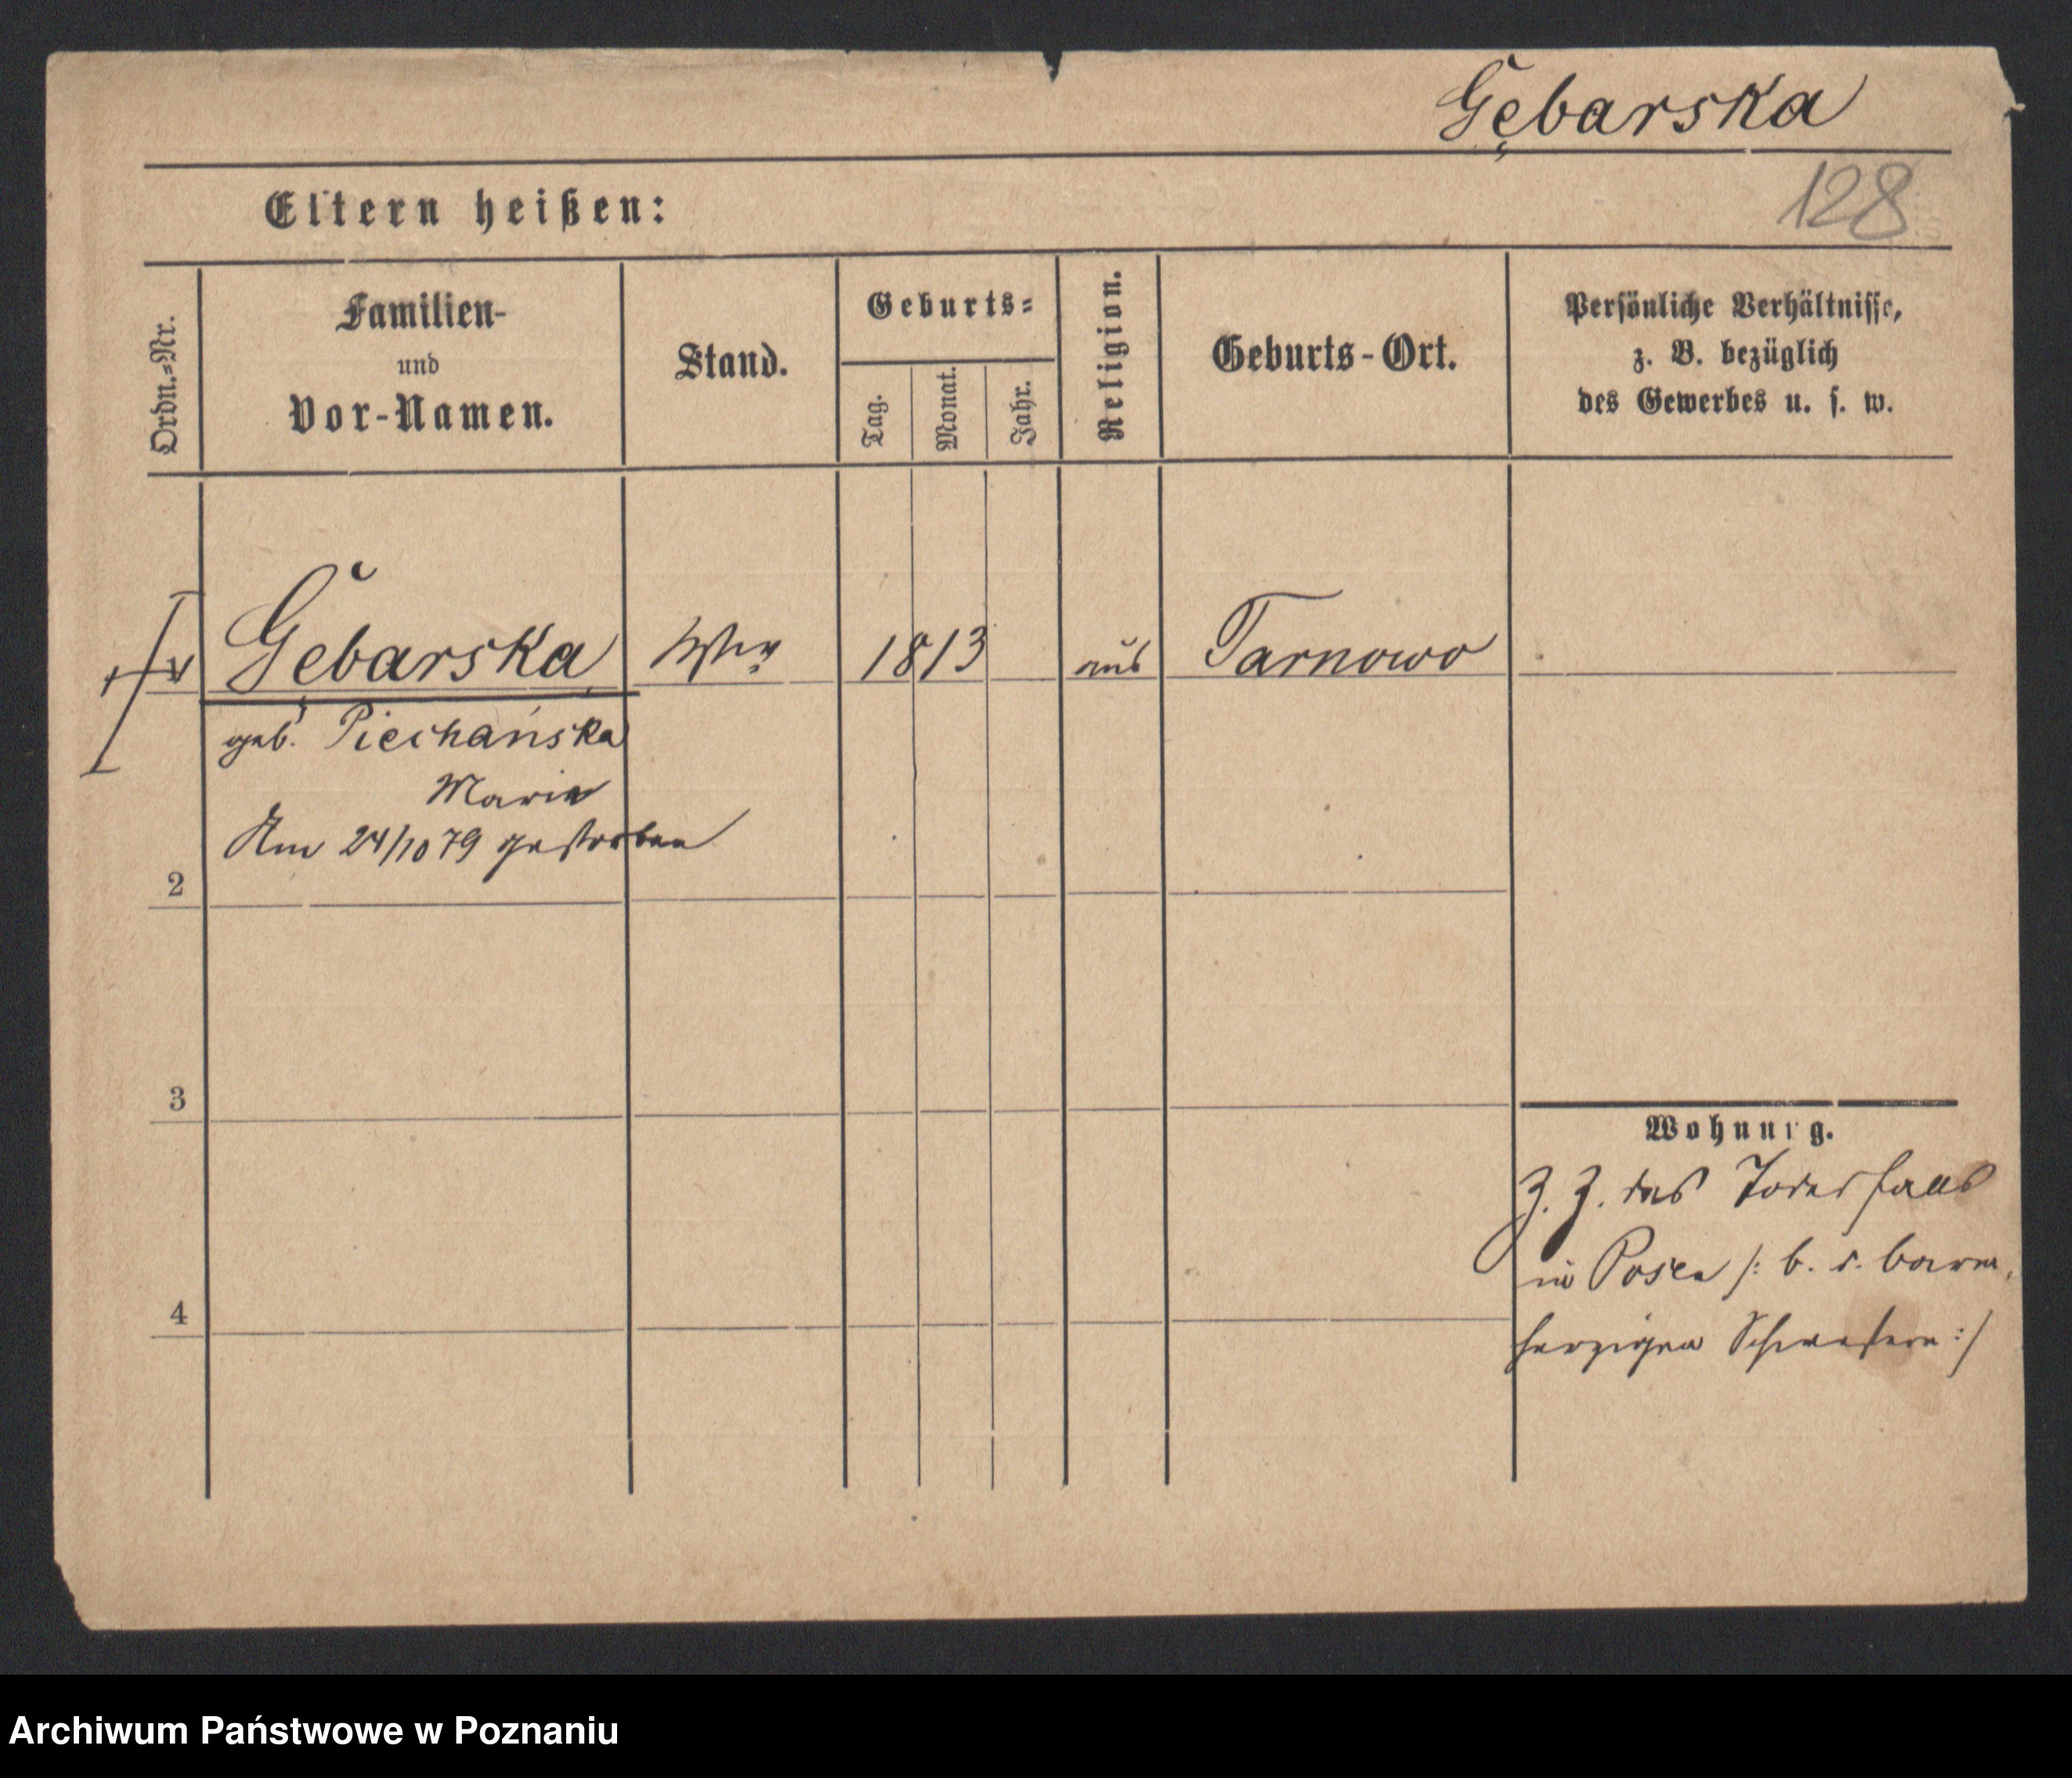 Gębarska
128
Eltern heißen:
Ordn.-Nr.
Familien-
und
Vor-Namen.
Stand.
Geburts-
Tag.
Monat.
Jahr.
Religion.
Geburts-Ort.
Persönliche Verhältnisse,
z. B. bezüglich
des Gewerbes u. s. w.
Gębarska
1813
Tarnowo
geb. Piechańska
Marie
Am 24/10 79 gestorben
2
3
4
Wohnung.
Z. Z. des Todesfalls
in Posen /: b. d. barm,
herzigen Schwestern :/
Archiwum Państwowe w Poznaniu